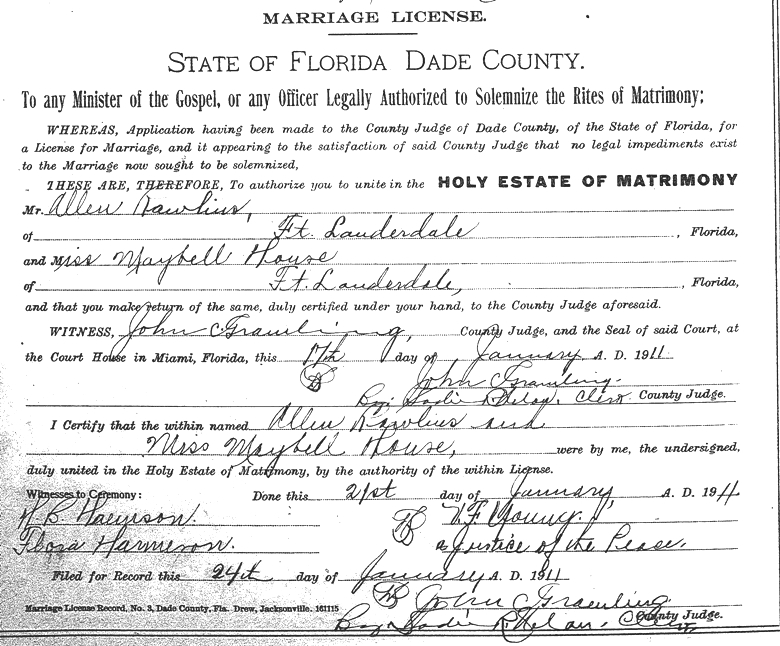 MARRIAGE LICENSE.
STATE OF FLORIDA DADE COUNTY.
To any Minister of the Gospel, or any Officer Legally Authorized to Solemnize the Rites of Matrimony;
WHEREAS, Application having been made to the County Judge of Dade County, of the State of Florida, for
a License for Marriage, and it appearing to the satisfaction of said County Judge that no legal impediments exist
to the Marriage now sought to be solemnized,
THESE ARE, THEREFORE, To authorize you to unite in the HOLY ESTATE OF MATRIMONY
Mr. Allen Rawlins,
of Ft. Lauderdale, Florida,
and Miss Maybell House
of Ft. Lauderdale, , Florida,
and that you make return of the same, duly certified under your hand, to the County Judge aforesaid.
WITNESS, John Gramling, County Judge, and the Seal of said Court, at
the Court House in Miami, Florida, this 17th day of January A. D. 1911
John Gramling.
By: Sadie Clerk County Judge.
I Certify that the within named Allen Rawlins and
Miss Maybell House, were by me, the undersigned,
duly united in the Holy Estate of Matrimony, by the authority of the within License.
Witnesses to Ceremony: Done this 21st day of January, A. D. 1911
W. F. Young.
Flora a Justice of the Peace.
Filed for Record this 24th day of January A. D. 1911
John Gramling
Marriage License Record, No. 3, Dade County, Fla. Drew, Jacksonville. 161115
County Judge.
By: Sadie Clerk